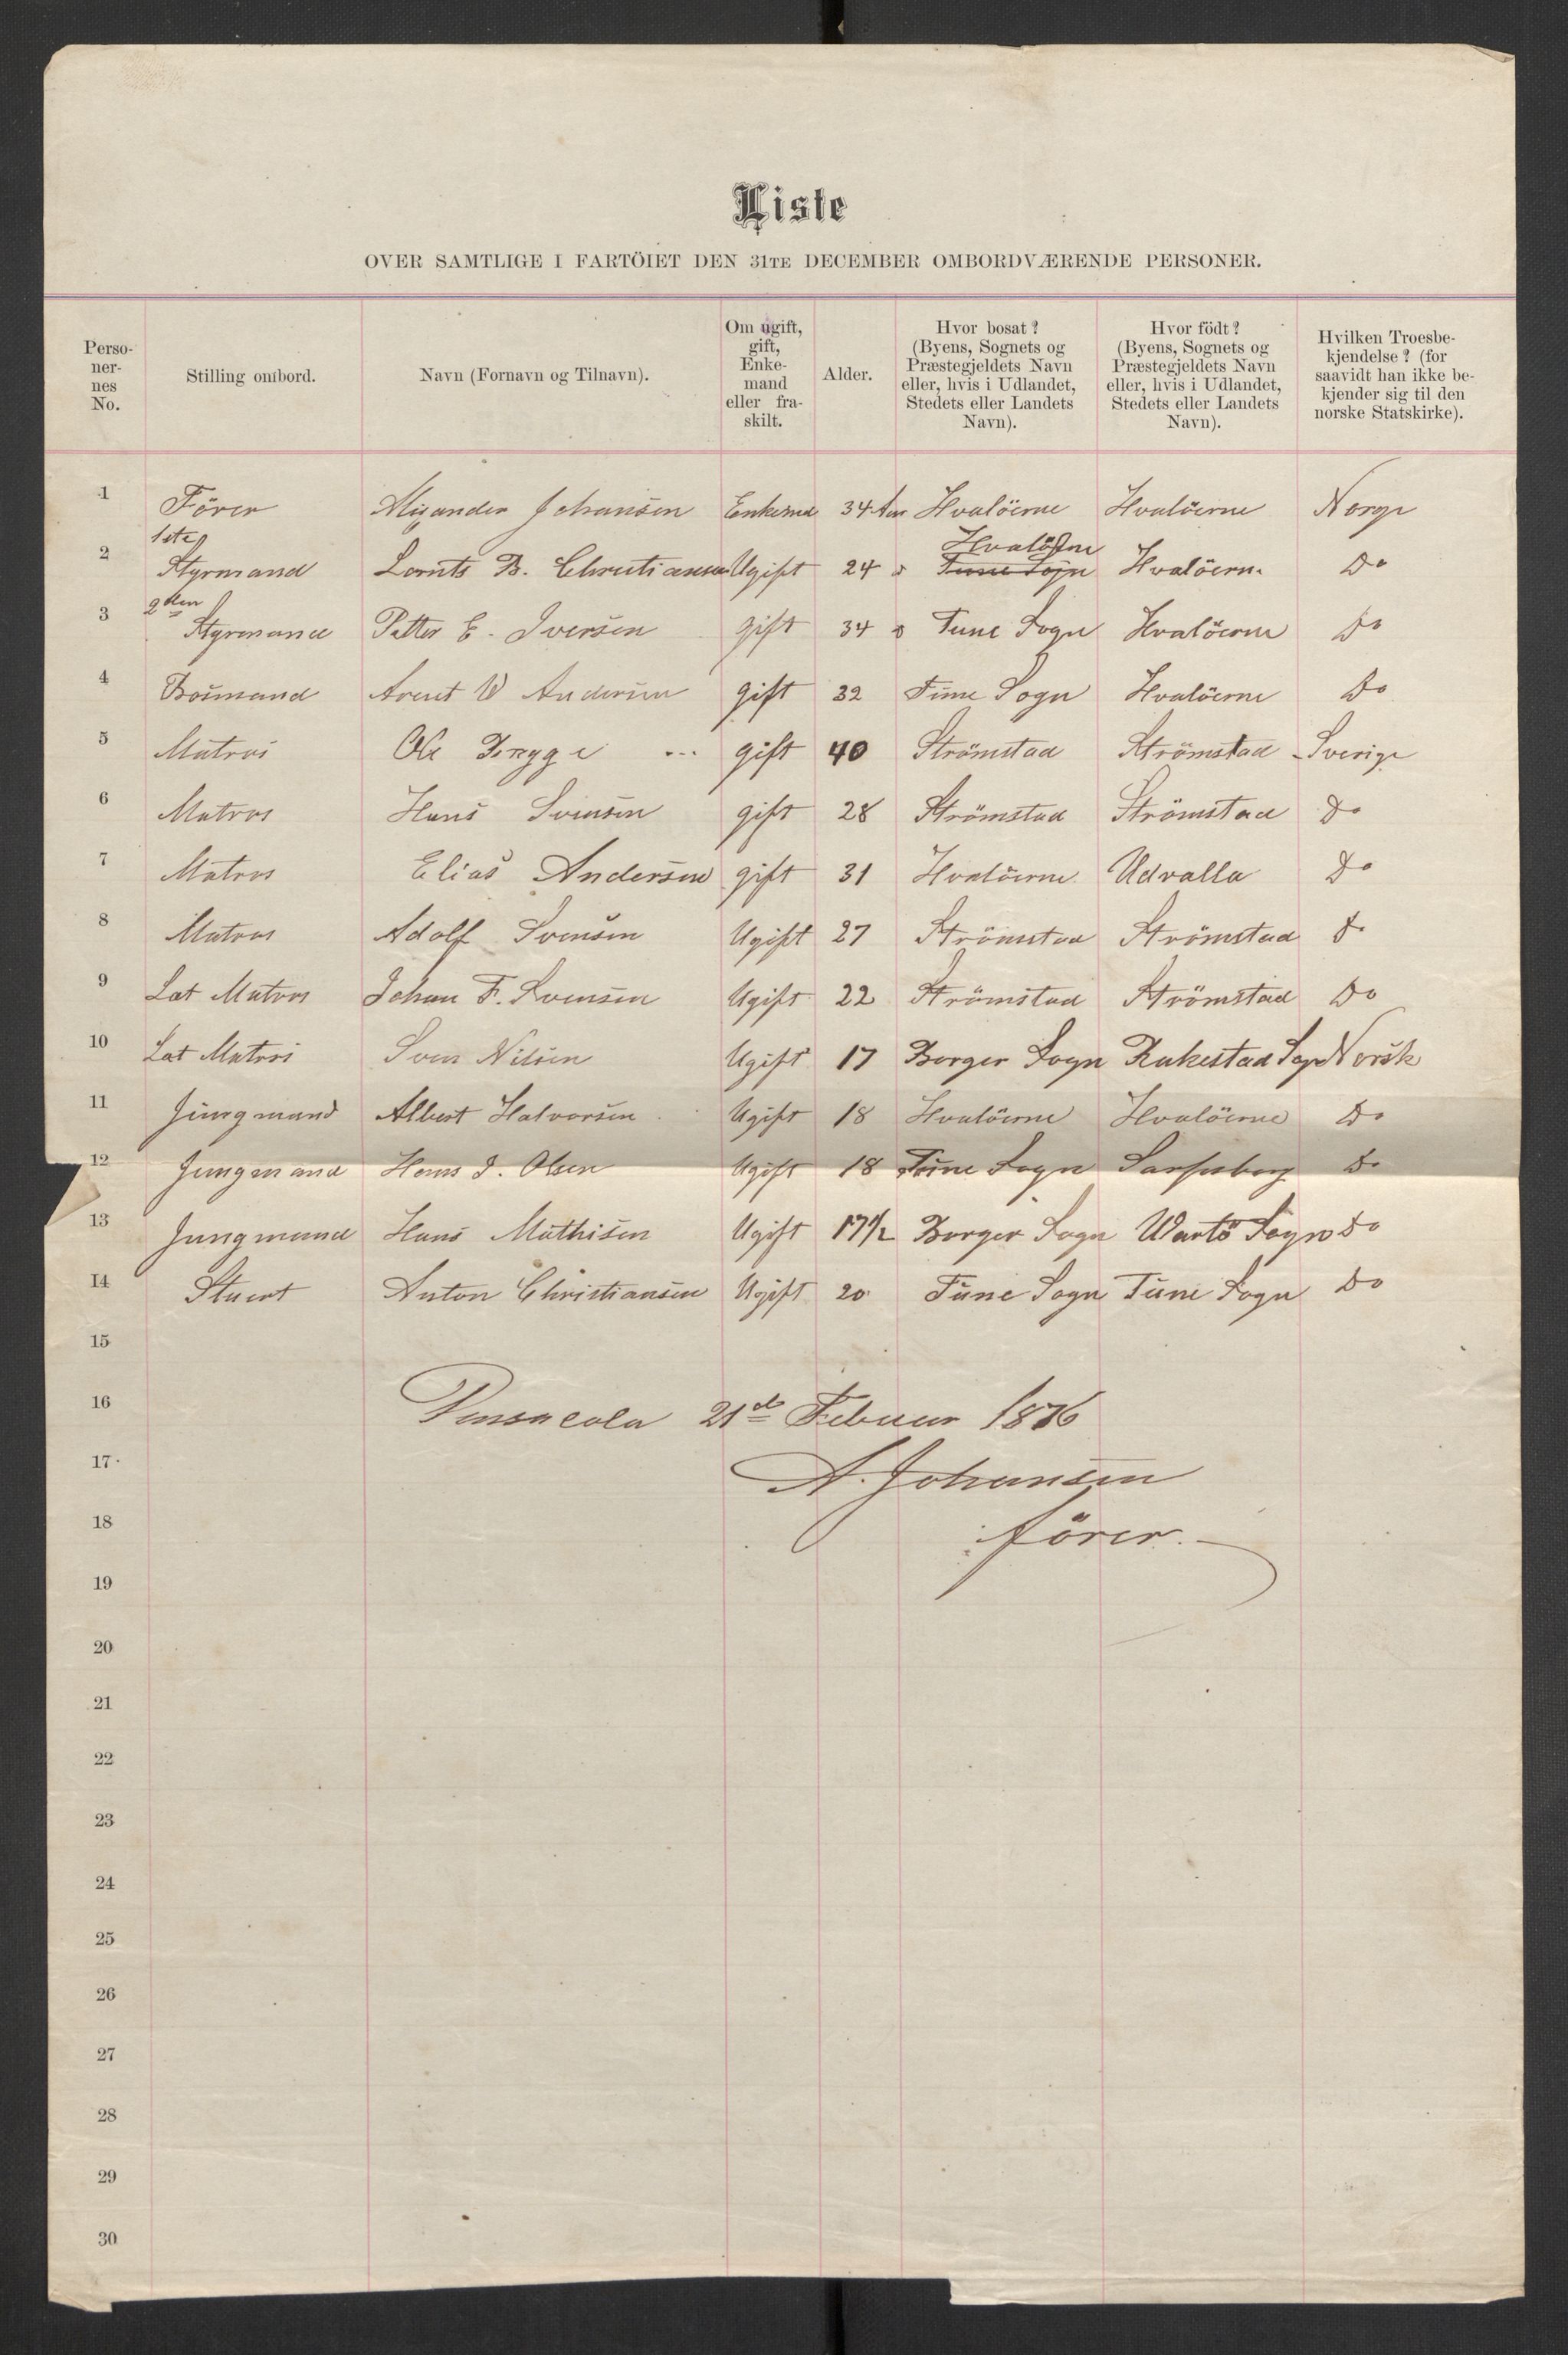 Liste
OVER SAMTLIGE I FARTÖIET DEN 31TE DECEMBER OMBORDVÆRENDE PERSONER.
Perso-
ner-
nes
No.
Stilling ombord.
Navn (Fornavn og Tilnavn).
Om ugift,
gift,
Enke-
mand
eller fra-
skilt.
Alder.
Hvor bosat?
(Byens, Sognets og
Præstegjeldets Navn
eller, hvis i Udlandet,
Stedets eller Landets
Navn).
Hvor födt?
(Byens, Sognets og
Præstegjeldets Navn
eller, hvis i Udlandet,
Stedets eller Landets
Navn).
Hvilken Troesbe-
kjendelse? (for
saavidt han ikke be-
kjender sig til den
norske Statskirke).
1 Förer Johansen 34 Aar Hvalöerne Hvalöerne Norge
1ste Hvalöerne
2 Styrmand Lornts B. Christiansen Ugift 24 Tune Sogn Hvalöerne Do
2den
3 Styrmand Petter E. Iversen gift 34 Tune Sogn Hvalöerne Do
4 Arent W Andersen gift 32 Tune Sogn Hvalöerne Do
5 Matros Ole Brygge gift 40 Strömstad Strömstad Sverige
6 Matros Hans Svensen gift 28 Strömstad Strömstad Do
7 Matros Elias Andersen gift 31 Hvalöerne Udvalla Do
8 Matros Adolf Svensen Ugift 27 Strömstad Strömstad Do
9 Let Matros Johan F. Svensen Ugift 22 Strömstad Strömstad Do
10 Let Matros Sven Nilsen Ugift 17 Borger Sogn Rakestad Sogn Norsk
11 Jungmand Albert Halvorsen Ugift 18 Hvalöerne Hvalöerne Do
12 Jungmand Hans J. Olsen Ugift 18 Tune Sogn Sarpsborg Do
13 Jungmand Hans Mathisen Ugift 17½ Borger Sogn Wartö Sogn Do
14 Stuert Anton Christiansen Ugift 20 Tune Sogn Tune Sogn Do
15
16 Pensacola 21de Februar 1876
17 A. Johansen
18 förer.
19
20
21
22
23
24
25
26
27
28
29
30